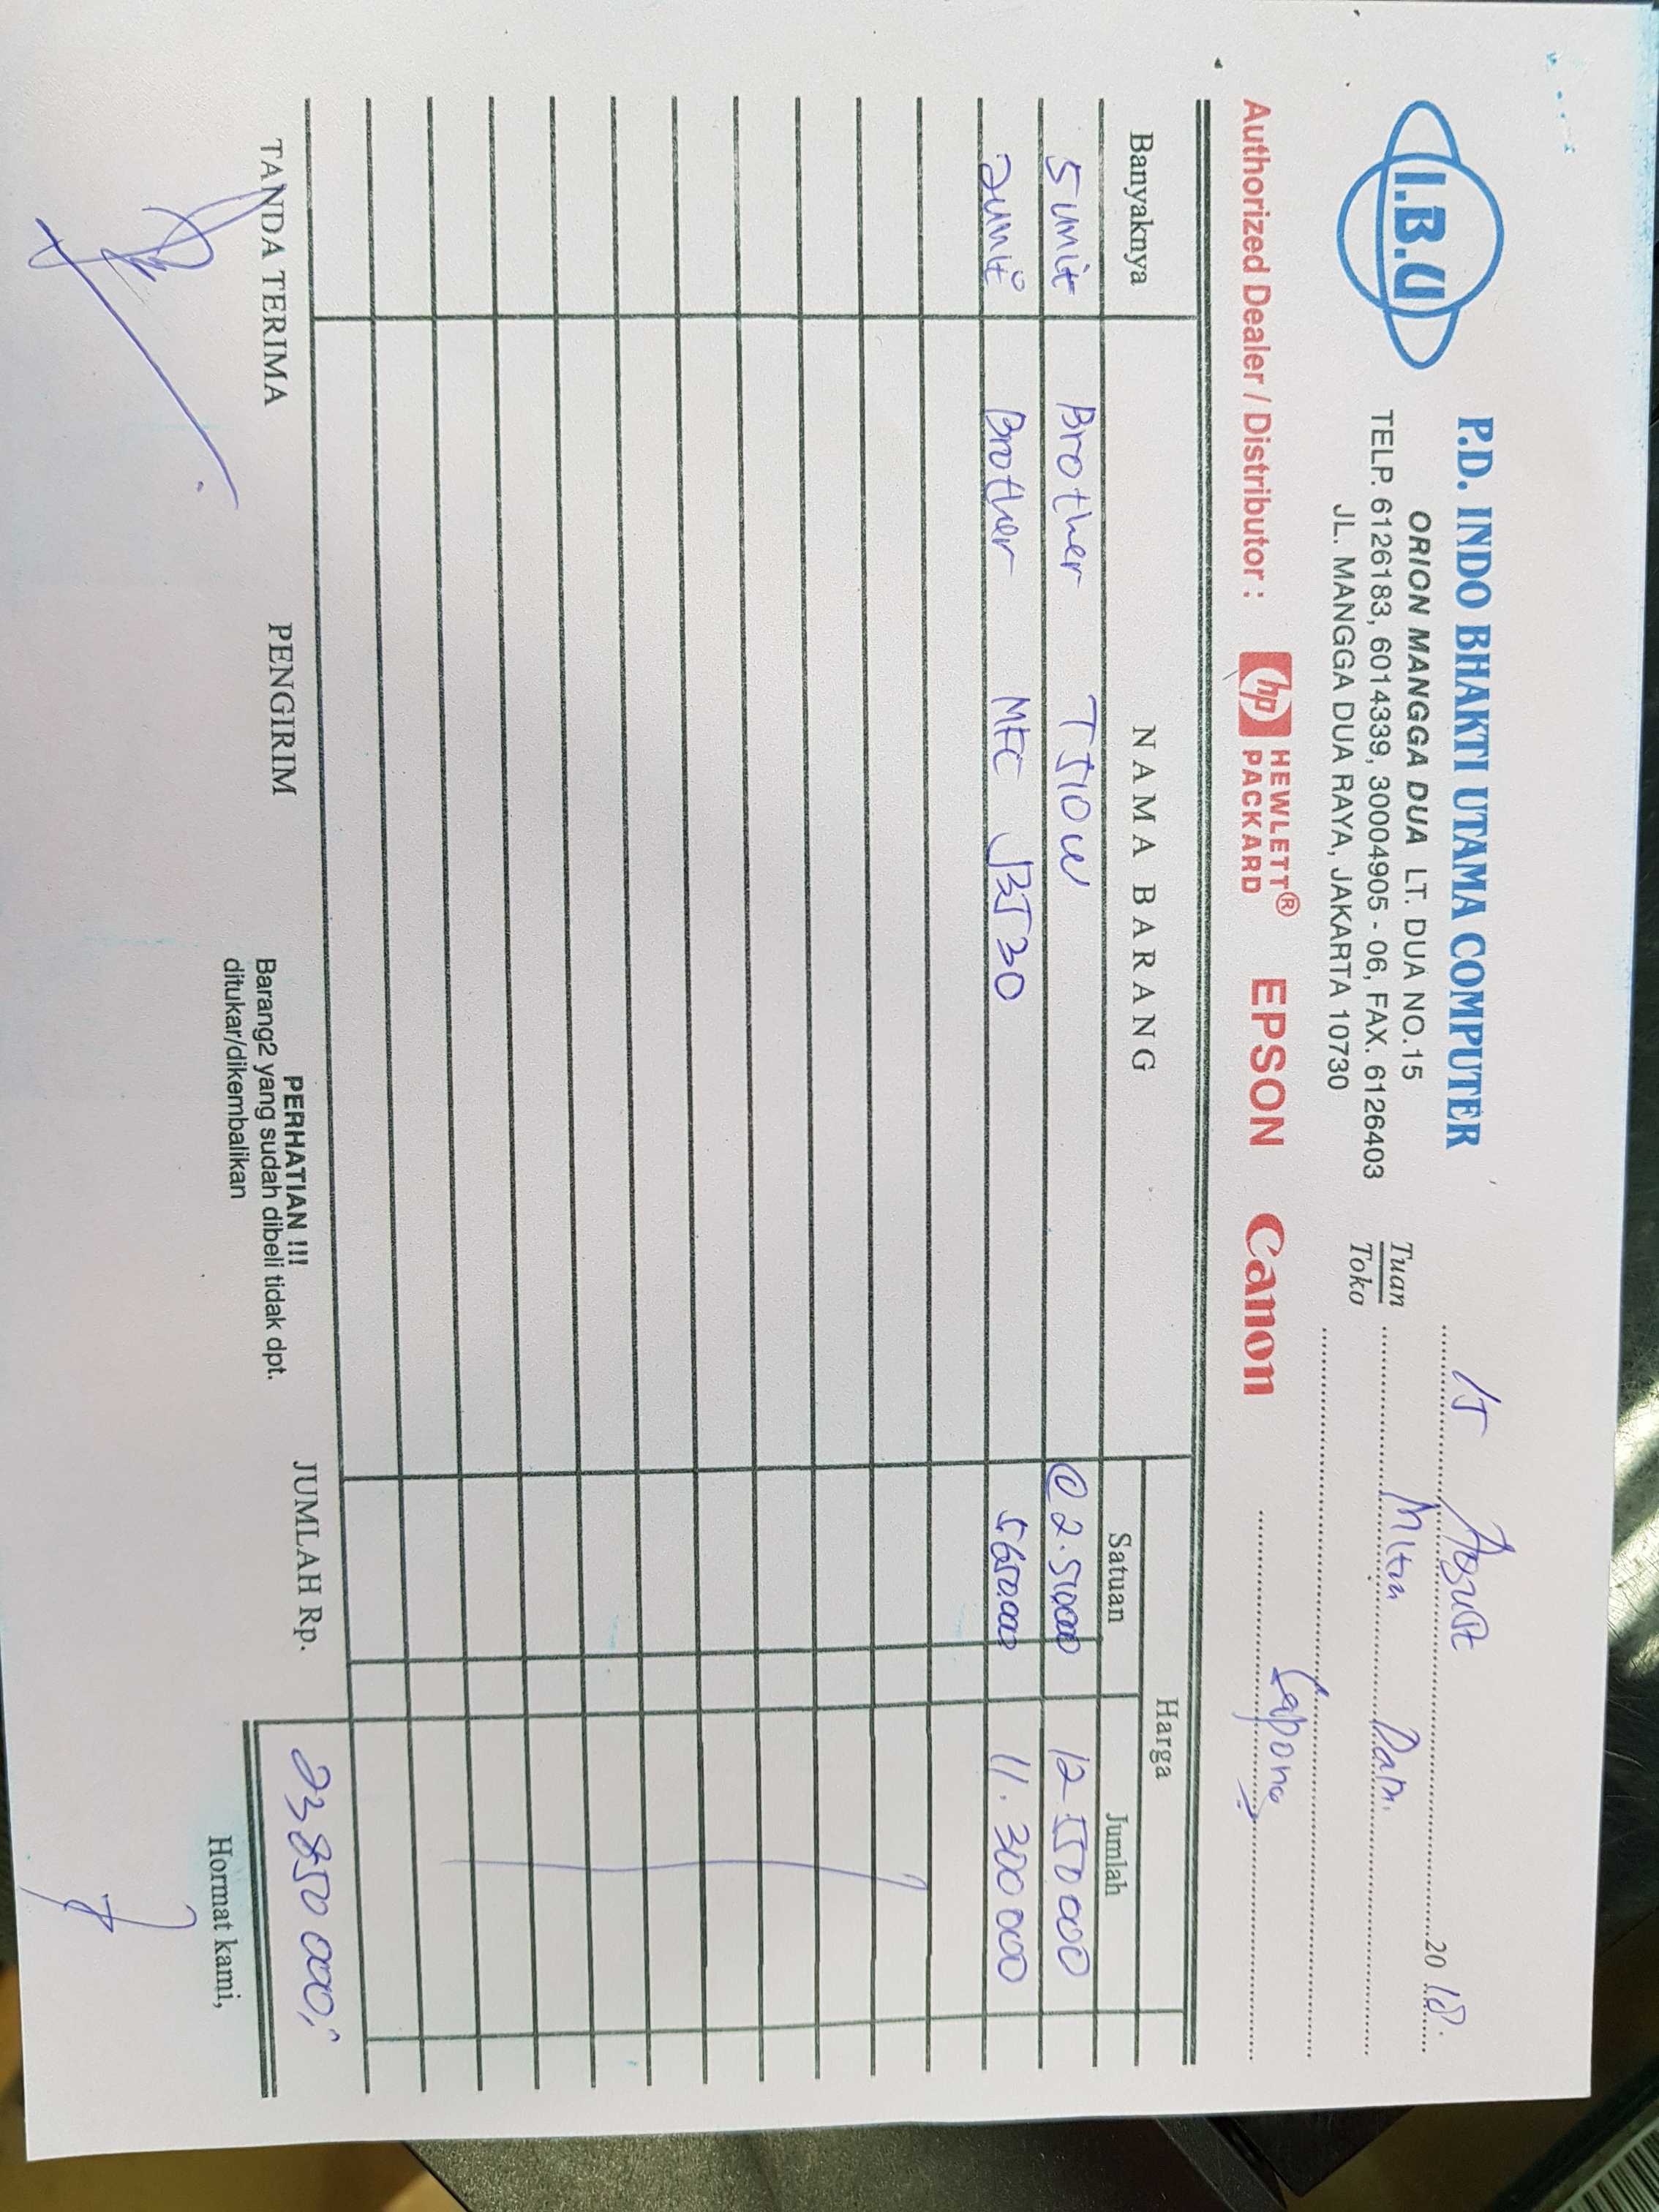 I.B.U
P.D. INDO BHAKTI UTAMA COMPUTER
ORION MANGGA DUA LT. DUA NO.15
TELP. 6126183, 6014339, 30004905 - 06, FAX. 6126403
JL. MANGGA DUA RAYA, JAKARTA 10730
15 Agust 2018
Tuan
Toko
Mitra
Authorized Dealer / Distributor : hp HEWLETT® PACKARD EPSON Canon
Banyaknya NAMA BARANG Harga
Satuan Jumlah
5 unit Brother T510W @ 2.510000 12.550000
2 unit Brother MFC J3530 5650.000 11.300000
TANDA TERIMA PENGIRIM JUMLAH Rp. 23850000,-
PERHATIAN !!!
Barang2 yang sudah dibeli tidak dpt.
ditukar/dikembalikan
Hormat kami,